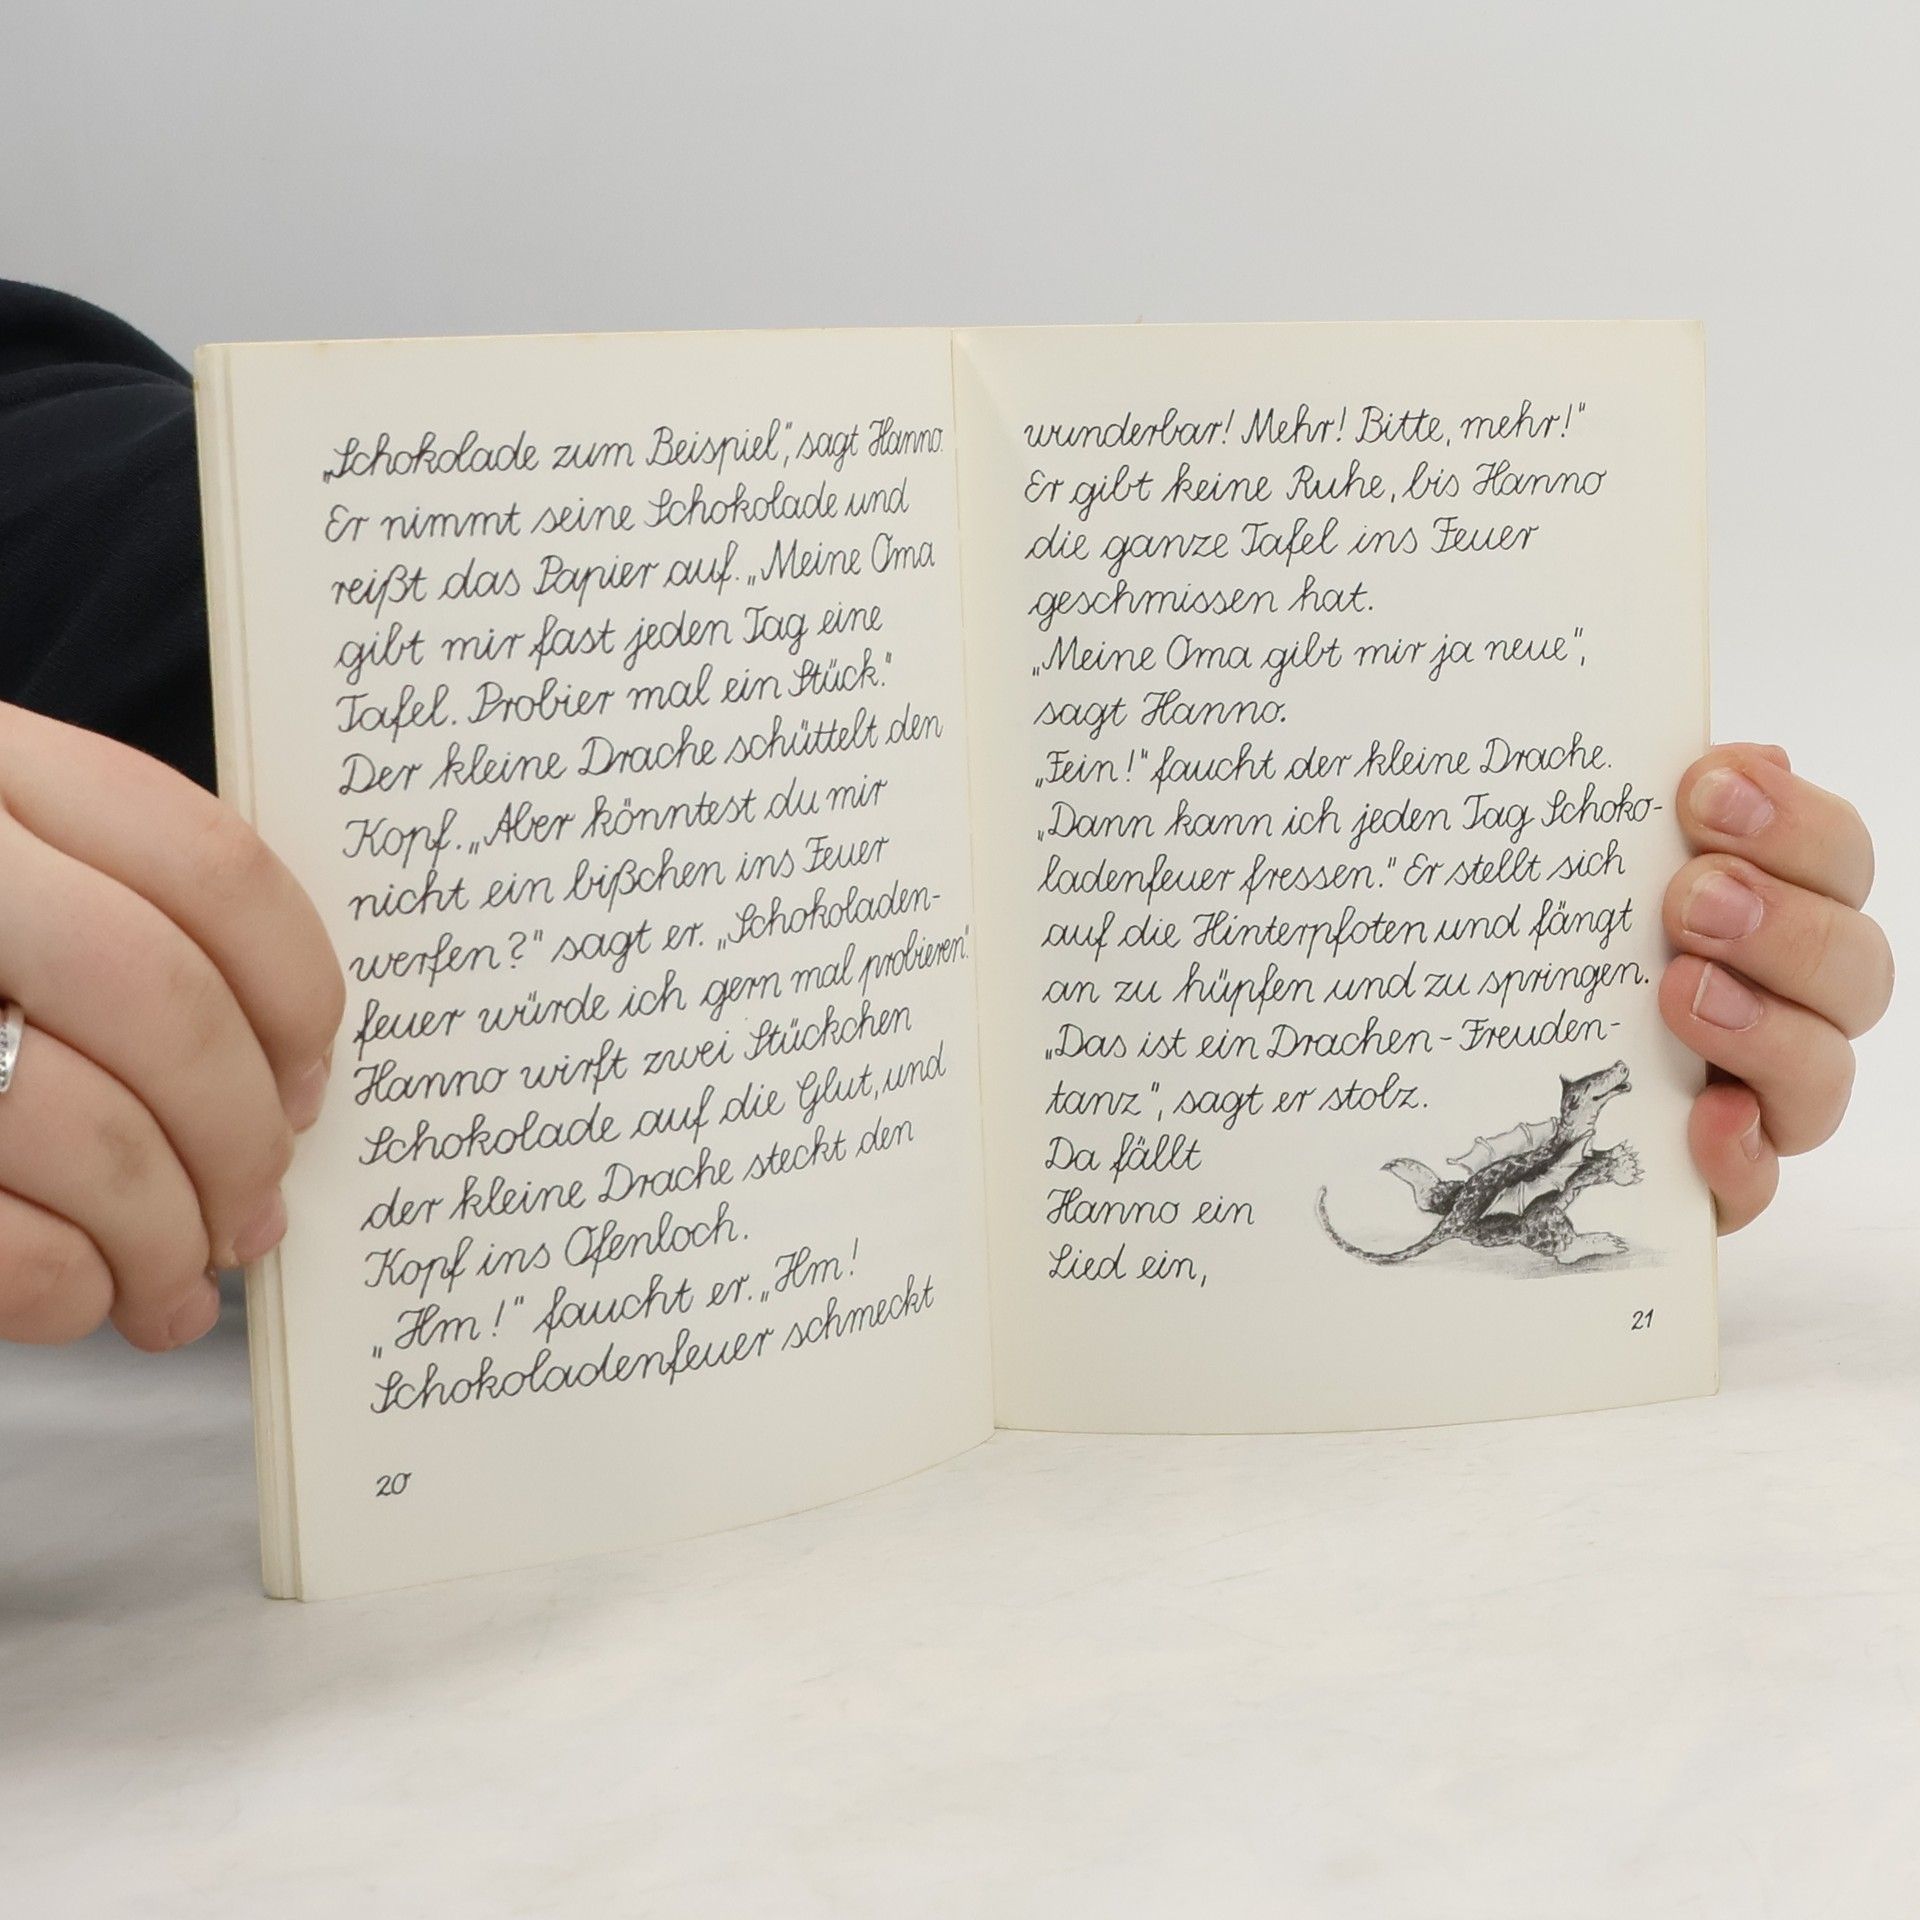 „Schokolade zum Beispiel“, sagt Hanno.
Er nimmt seine Schokolade und
reißt das Papier auf. „Meine Oma
gibt mir fast jeden Tag eine
Tafel. Probier mal ein Stück.“
Der kleine Drache schüttelt den
Kopf. „Aber könntest du mir
nicht ein bißchen ins Feuer
werfen?“ sagt er. „Schokoladen-
feuer würde ich gern mal probieren.“
Hanno wirft zwei Stückchen
Schokolade auf die Glut, und
der kleine Drache steckt den
Kopf ins Ofenloch.
„Hm!“ faucht er. „Hm!
Schokoladenfeuer schmeckt
20
wunderbar! Mehr! Bitte, mehr!“
Er gibt keine Ruhe, bis Hanno
die ganze Tafel ins Feuer
geschmissen hat.
„Meine Oma gibt mir ja neue“,
sagt Hanno.
„Fein!“ faucht der kleine Drache.
„Dann kann ich jeden Tag Schoko-
ladenfeuer fressen.“ Er stellt sich
auf die Hinterpfoten und fängt
an zu hüpfen und zu springen.
„Das ist ein Drachen-Freuden-
tanz“, sagt er stolz.
Da fällt
Hanno ein
Lied ein,
21